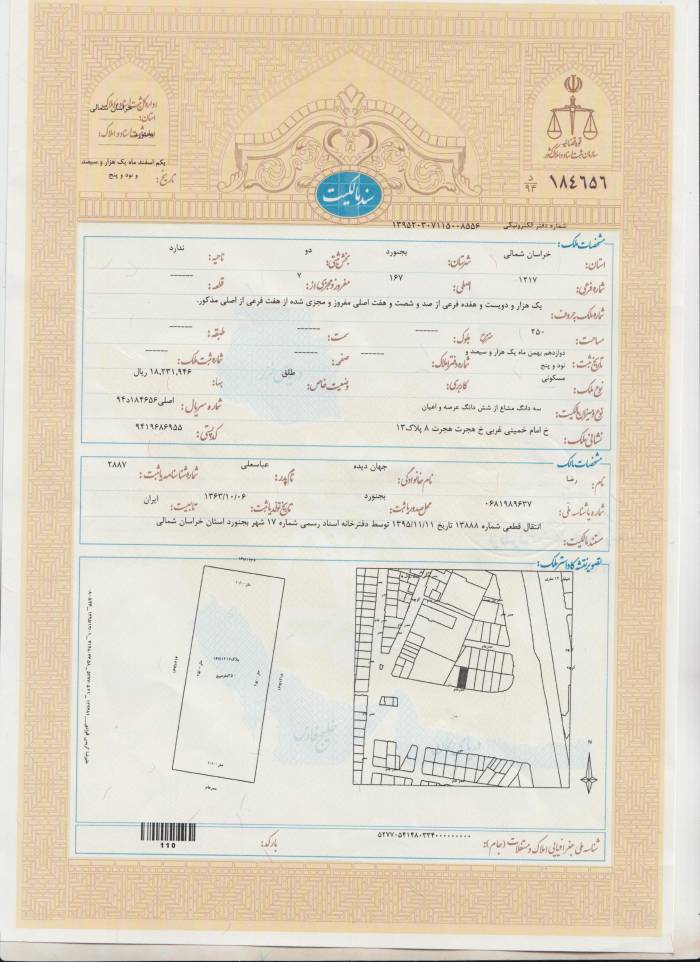 اداره کل ثبت اسناد و املاک
استان: خراسان شمالی
تاریخ: یکم اسفند ماه یک هزار و سیصد
و نود و پنج
قوه قضائیه
سازمان ثبت اسناد و املاک کشور
سند مالکیت
۱۸٤٦٥٦ د ۹۴
شماره دفتر الکترونیکی: ۱۳۹۵۲۰۳۰۷۱۱۵۰۰۸۵۵۶
مشخصات ملک:
استان: خراسان شمالی شهرستان: بجنورد بخش ثبتی: دو ناحیه: ندارد
شماره فرعی: ۱۲۱۷ اصلی: ۱۶۷ مفروز و مجزی از: ۷ قطعه: ------
شماره ملک به حروف: یک هزار و دویست و هفده فرعی از صد و شصت و هفت اصلی مفروز و مجزی شده از هفت فرعی از اصلی مذکور.
مساحت: ۲۵۰ مترمربع بلوک: ------ سمت: ------ طبقه: ------
تاریخ ثبت: دوازدهم بهمن ماه یک هزار و سیصد و نود و پنج شماره دفتر املاک: ------ صفحه: ------ شماره ثبت ملک: ------
نوع ملک: مسکونی کاربری: وضعیت خاص: طلق بها: ۱۸,۲۳۱,۹۴۶ ریال
نوع و میزان مالکیت: سه دانگ مشاع از شش دانگ عرصه و اعیان شماره سریال: اصلی۱۸۴۶۵۶د۹۴
نشانی ملک: خ امام خمینی غربی خ هجرت هجرت ۸ پلاک۱۳ کدپستی: ۹۴۱۹۶۸۶۹۵۵
مشخصات مالک
نام: رضا نام خانوادگی: جهان دیده نام پدر: عباسعلی شماره شناسنامه یا ثبت: ۲۸۸۷
شماره یا شناسه ملی: ۰۶۸۱۹۸۹۶۳۷ محل صدور یا ثبت: بجنورد تاریخ تولد یا ثبت: ۱۳۶۳/۱۰/۰۶ تابعیت: ایران
مستند مالکیت: انتقال قطعی شماره ۱۳۸۸۸ تاریخ ۱۳۹۵/۱۱/۱۱ توسط دفترخانه اسناد رسمی شماره ۱۷ شهر بجنورد استان خراسان شمالی
تصویر نقشه کاداستر ملک:
دریای خزر
خلیج فارس
N
شناسه ملی جغرافیایی املاک و مستغلات (جام):
بارکد:
110